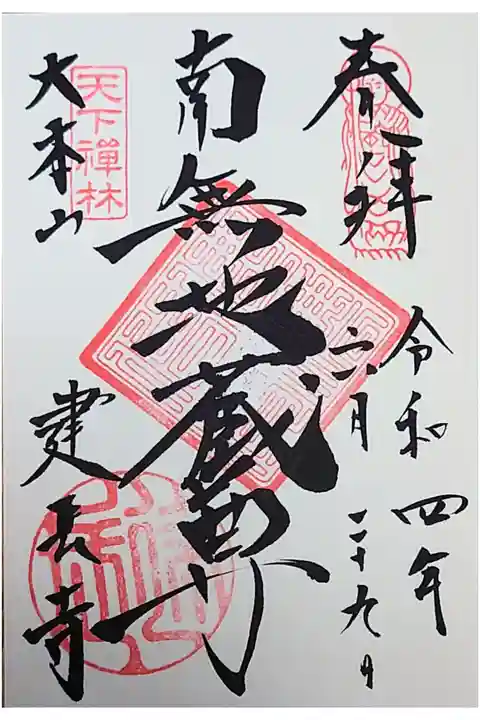 奉拝
令和四年
六月二十九日
南無地蔵尊
天下禅林
大本山
建長寺